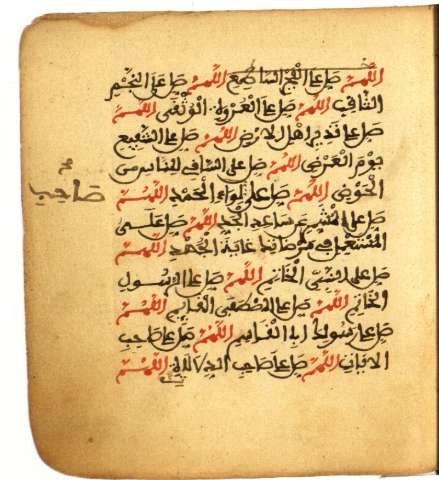 اللهم صل على الفجر الساطع اللهم صل على النجم
الثاقب اللهم صل على العروة الوثقى اللهم
صل على نذير اهل الارض اللهم صل على الشفيع
يوم العرض اللهم صل على الساقي للناس من
الحوض اللهم صل على لواء الحمد اللهم
صاحب
صل على المشمر عن ساعد الجد اللهم صل على
المستعمل في مرضاتك غاية الجهد اللهم
صل على النبي الخاتم اللهم صل على الرسول
الخاتم اللهم صل على المصطفى القائم اللهم
صل على رسولك ابي القاسم اللهم صل على صاحب
الايات اللهم صل على صاحب الدلالات اللهم